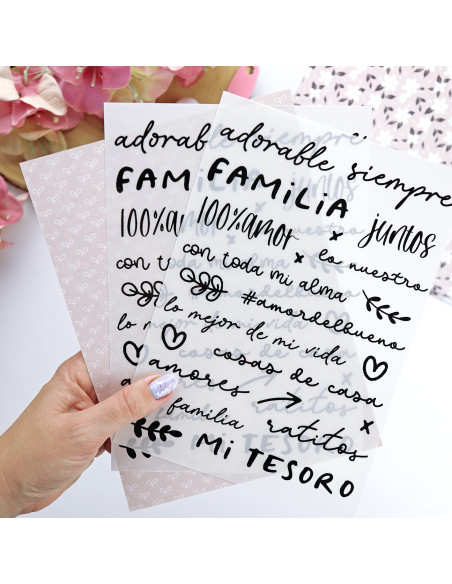 adorable siempre
FAMiLiA
100%amor
juntos
x lo nuestro
con toda mi alma
#amordelbueno
lo mejor de mi vida
cosas de casa
amores
familia
ratitos
x
Mi TESORO
adorable
FAMiLiA
100%amor
con t
lo m